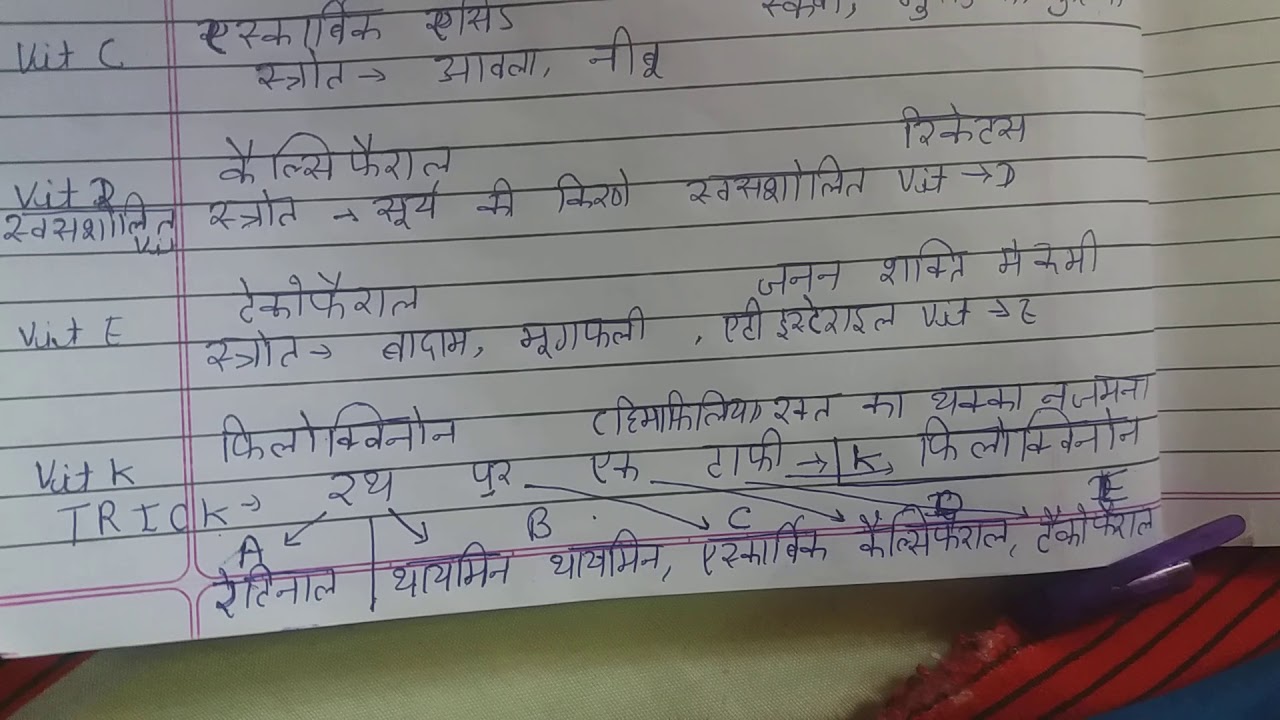 Vit C एस्कार्विक एसिड
स्त्रोत → आवला, नीबू
कैल्सिफैराल रिकेटस
Vit D स्त्रोत → सूर्य की किरणे स्वसशोलित Vit → D
स्वसशोलित
Vit
टेकोफैराल जनन शक्ति मे कमी
Vit E स्त्रोत → बादाम, मूगफली , एटी इस्टेराइल Vit → E
फिलोक्विनोन (हिमोफिलिया) रक्त का थक्का न जमना
Vit K
TRICK → रथ पुर एक टाफी → K → फिलोक्विनोन
A B C D E
रेटिनाल | थायमिन थायमिन, एस्कार्विक कैल्सिफैराल, टैकोफैराल